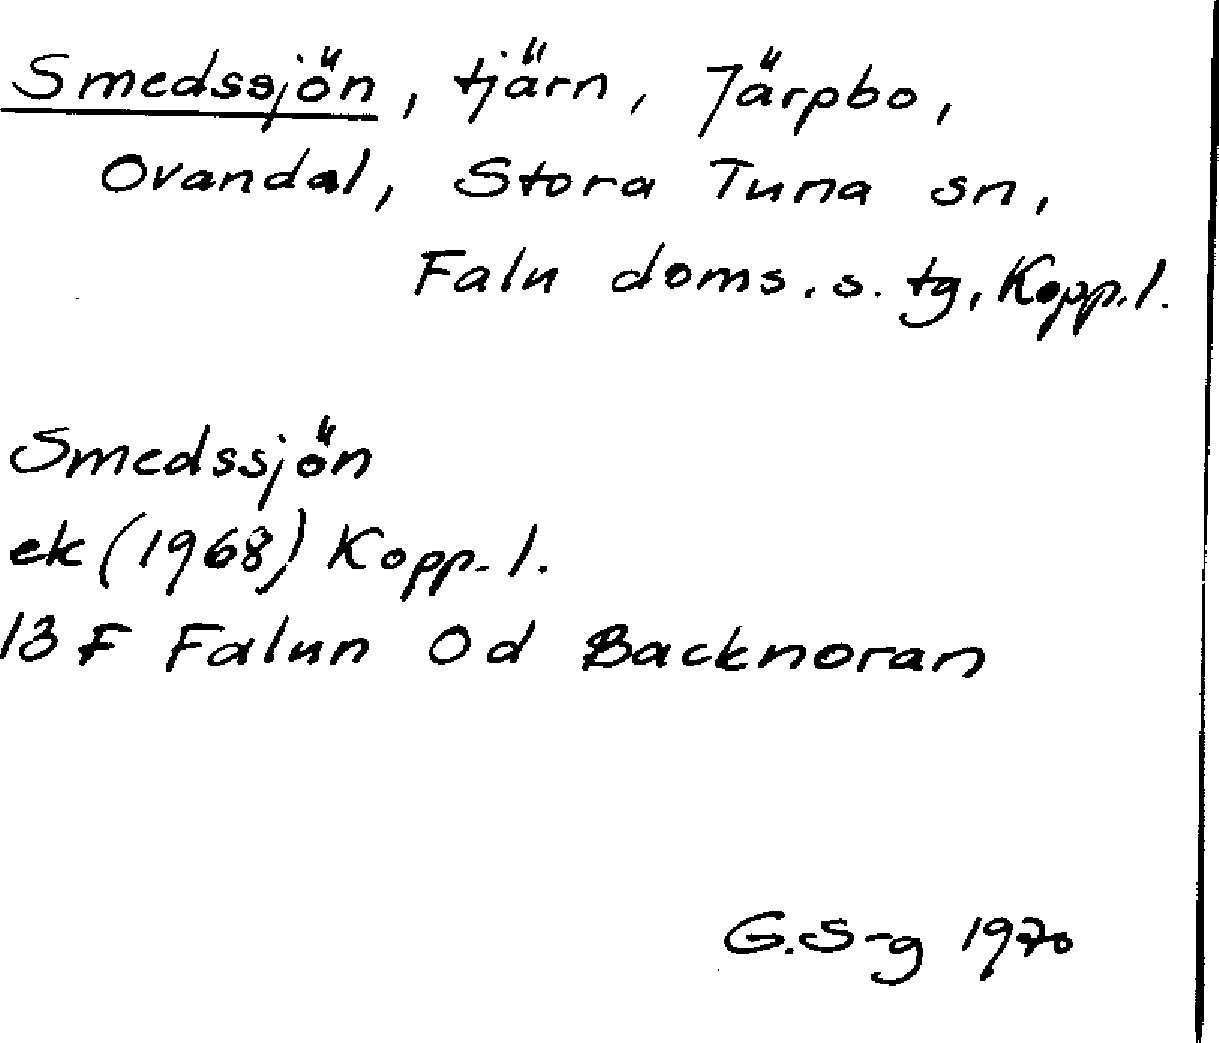 Smedssjön, tjärn, Järpbo,
Ovandal, Stora Tuna sn,
Falu doms. s. tg, Kopp. l.
Smedssjön
ek (1968) Kopp. l.
13 F Falun 0d Backnoran
G.S-g 1970